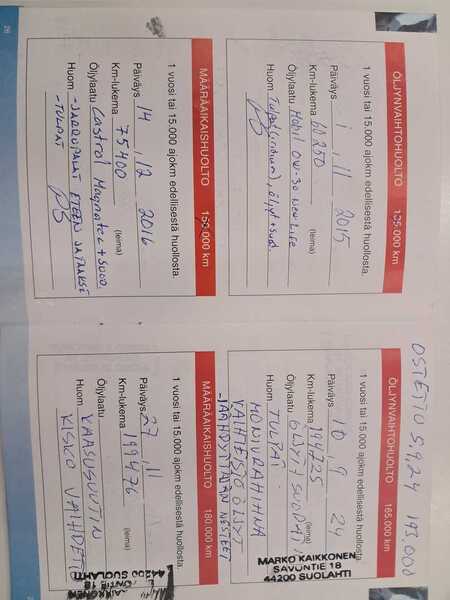 ÖLJYNVAIHTOHUOLTO 135.000 km
1 vuosi tai 15.000 ajokm edellisestä huollosta.
Päiväys 1 , 11 2015
Km-lukema 60 250
(leima)
Öljylaatu Mobil 0W-30 New Life
Huom
MÄÄRÄAIKAISHUOLTO 150.000 km
1 vuosi tai 15.000 ajokm edellisestä huollosta.
Päiväys 14 12 2016
Km-lukema 75400
(leima)
Öljylaatu Castrol Magnatec + suod.
Huom - JARRUPALAT ETEEN JA TAAKSE
- TULPAT
26
OSTETTU 5.9.24 193.000
ÖLJYNVAIHTOHUOLTO 165.000 km
1 vuosi tai 15.000 ajokm edellisestä huollosta.
Päiväys 10 , 9 24
Km-lukema 194725
(leima)
Öljylaatu ÖLJYN SUODATIN
Huom TULPAT
MONIURAHIHNA
VAIHTEISTO ÖLJYT
- JÄÄHDYTTÄJÄN NESTEET
MARKO KAIKKONEN
SAVUNTIE 18
44200 SUOLAHTI
MÄÄRÄAIKAISHUOLTO 180.000 km
1 vuosi tai 15.000 ajokm edellisestä huollosta.
Päiväys 27 , 11
Km-lukema 199476
(leima)
Öljylaatu
Huom KAASUSUUTIN
KISKO VAIHDETTU
44200 SUOLAHTI